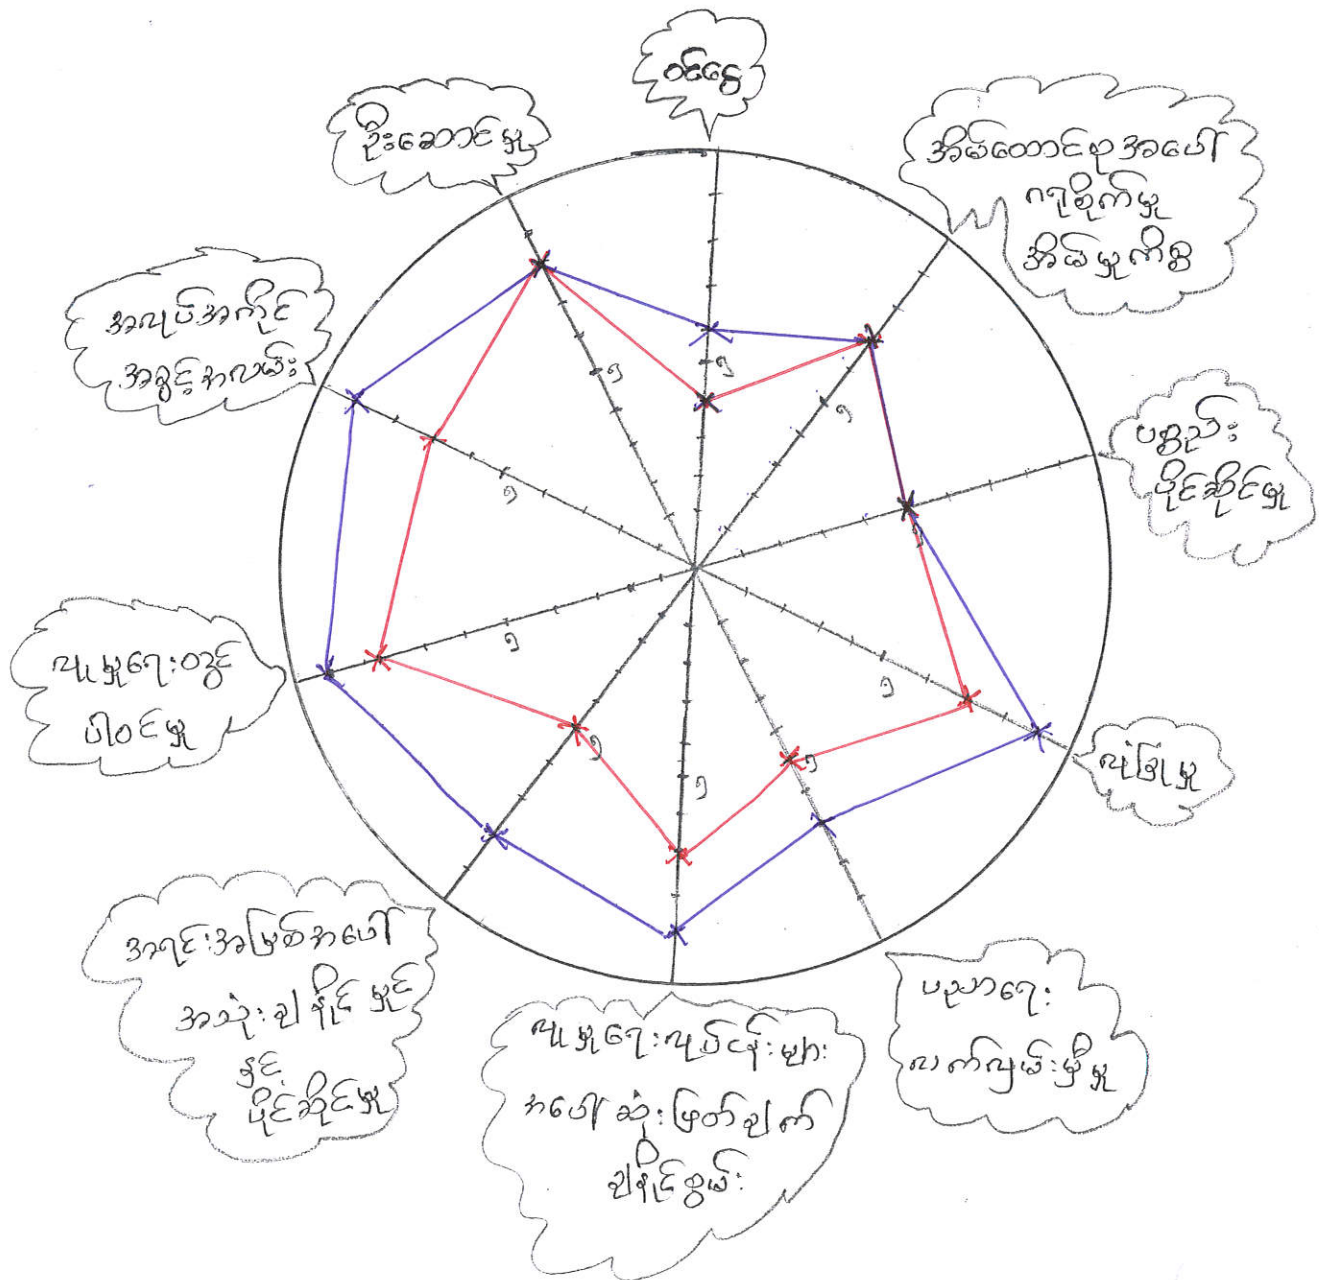 ဝင်ငွေ
အိမ်ထောင်စုအပေါ်
ဂရုစိုက်မှု
အိမ်မှုကိစ္စ
ပစ္စည်း
ပိုင်ဆိုင်မှု
လုံခြုံမှု
ပညာရေး
လက်လှမ်းမှီမှု
လူမှုရေးလုပ်ငန်းများ
အပေါ်ဆုံးဖြတ်ချက်
ချနိုင်စွမ်း
အရင်းအမြစ်အပေါ်
အသုံးချနိုင်မှုင်
နှင့်
ပိုင်ဆိုင်မှု
လူမှုရေးဝတွင်
ပါဝင်မှု
အလုပ်အကိုင်
အခွင့်အလမ်း
ဦးဆောင်မှု
၅
၅
၅
၅
၅
၅
၅
၅
၅
၅